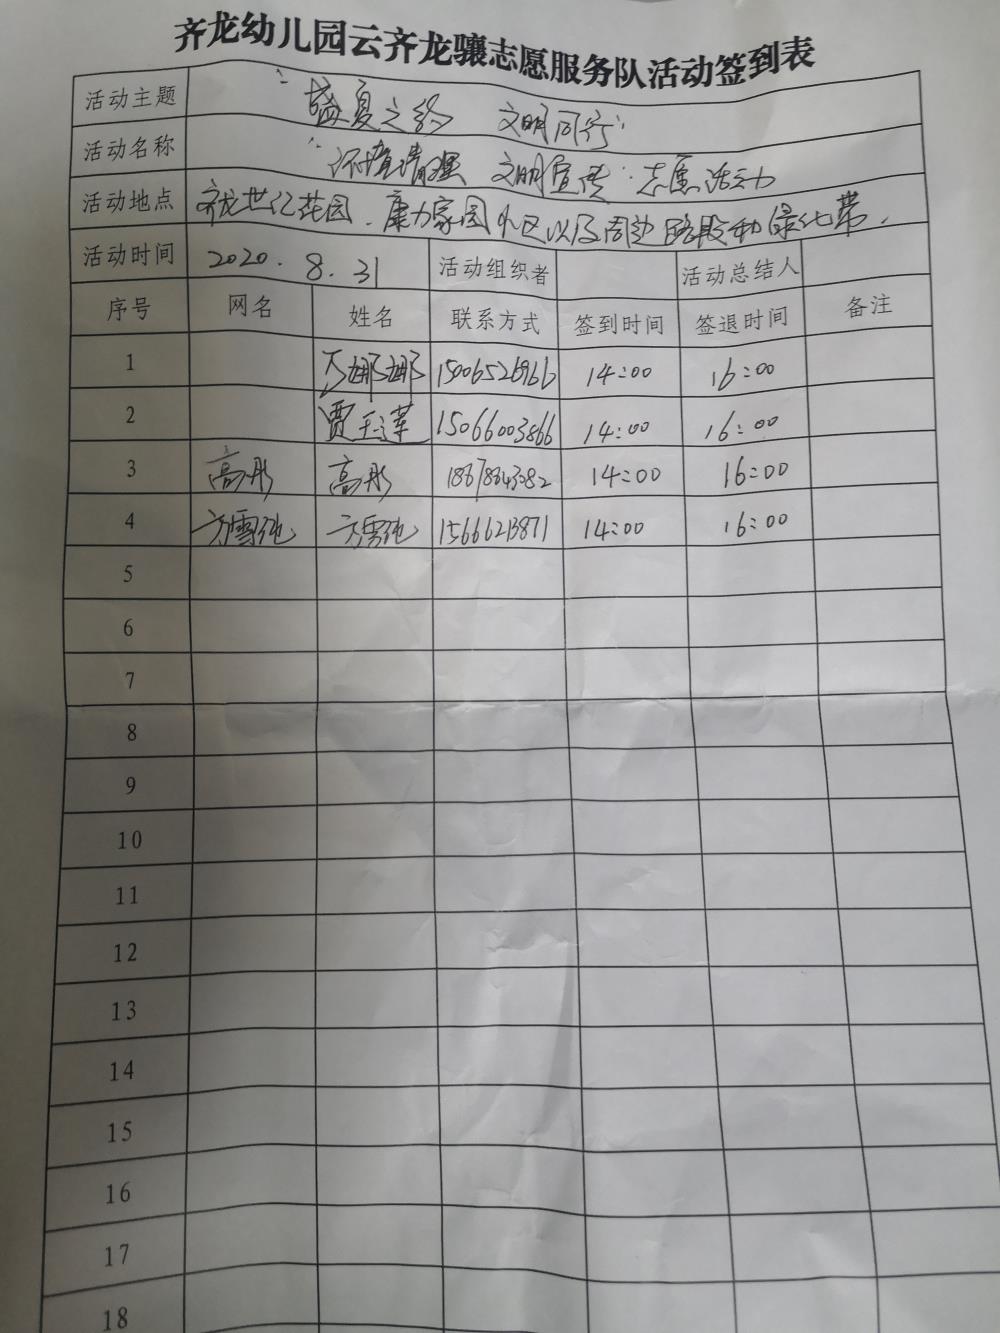 齐龙幼儿园云齐龙骧志愿服务队活动签到表
活动主题 “盛夏之约 文明同行”
活动名称 “环境清理 文明宣传”志愿活动
活动地点 齐龙世纪花园、康力家园小区以及周边路段和绿化带.
活动时间 2020.8.31 活动组织者 活动总结人
序号 网名 姓名 联系方式 签到时间 签退时间 备注
1 娜娜 15006526966 14:00 16:00
2 贾玉莲 15066003866 14:00 16:00
3 高彤 高彤 14:00 16:00
4 方雪纯 方雪纯 15666213871 14:00 16:00
5
6
7
8
9
10
11
12
13
14
15
16
17
18